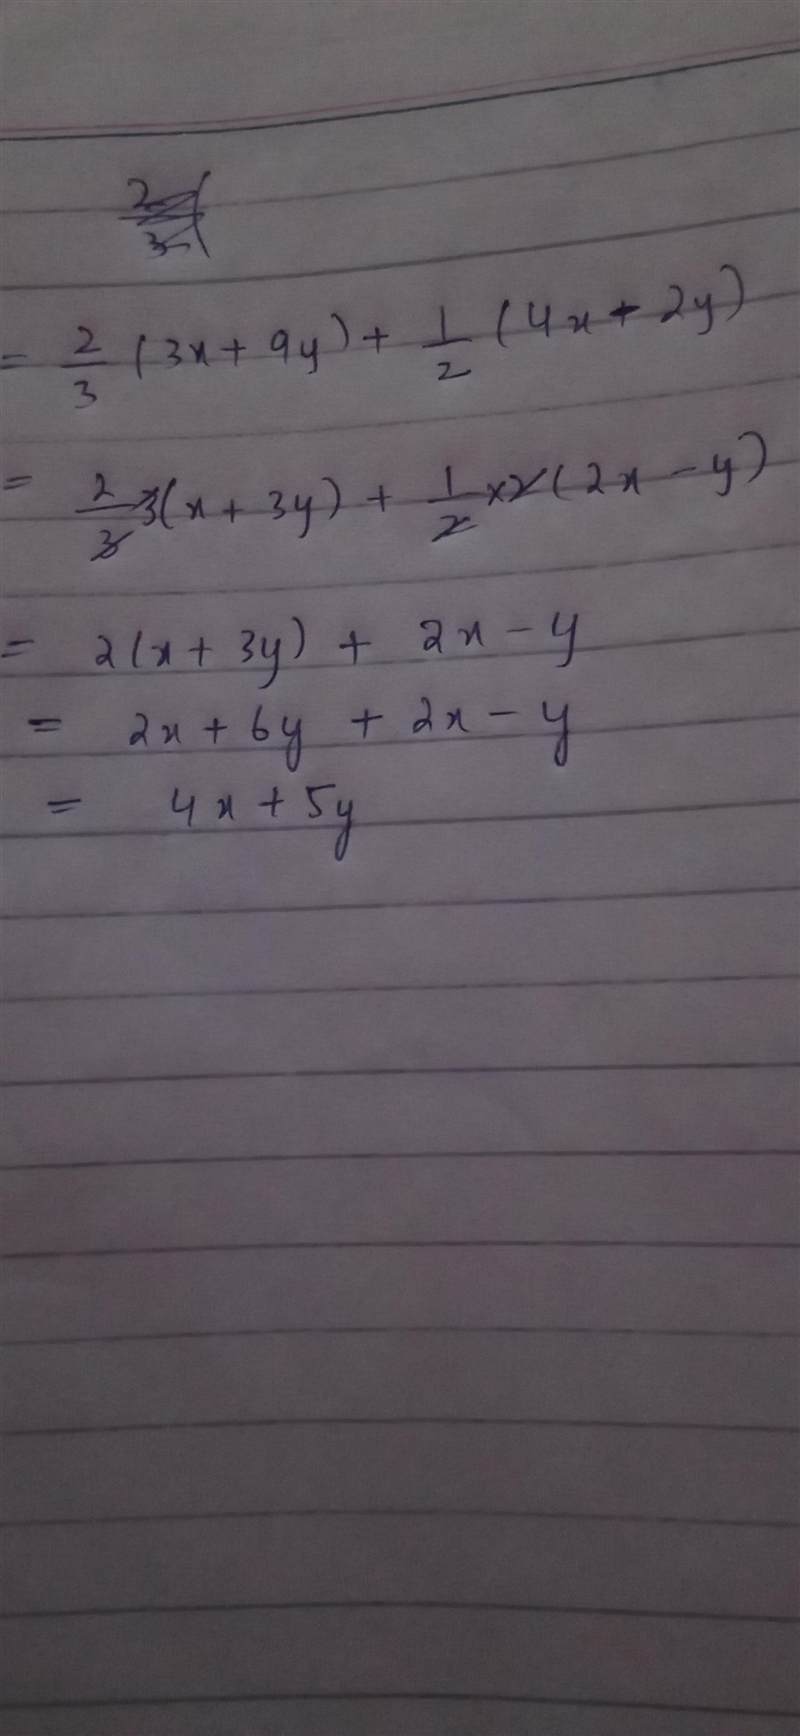 = 2/3 (3x + 9y) + 1/2 (4x - 2y)
= 2/3 3(x + 3y) + 1/2 x2 (2x - y)
= 2(x + 3y) + 2x - y
= 2x + 6y + 2x - y
= 4x + 5y